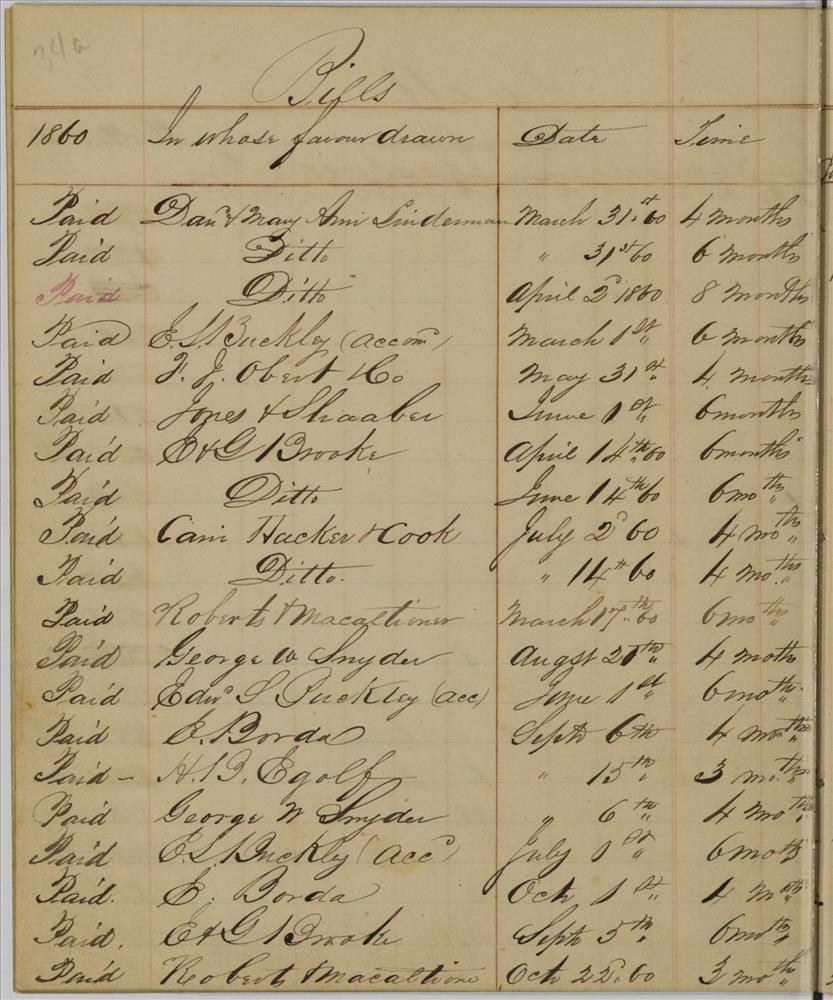 34a
Bills
1860 In whose favour drawn Date Time
Paid Danl & Mary Ann Linderman March 31st 60 4 months
Paid Ditto " 31st 60 6 months
Paid Ditto April 2d 1860 8 months
Paid E. S. Buckley (accom) March 1st " 6 months
Paid F. J. Obert & Co May 31st " 4 months
Paid Jones & Shaaber June 1st " 6 months
Paid E & G Brooke April 14th 60 6 months
Paid Ditto June 14th 60 6 moths "
Paid Cain Hacker & Cook July 2d 60 4 moths "
Paid Ditto. " 14th 60 4 mo.ths "
Paid Roberts & Macaltioner March 17th 60 6 moths
Paid George W Snyder Augst 21th " 4 moths
Paid Edwd S Buckley (acc) June 1st " 6 moths "
Paid E. Borda Septr 6th 4 moths "
Paid - H. B. Egolf " 15th " 3 mo.ths "
Paid George W Snyder " 6th " 4 moths "
Paid E. S. Buckley (accd) July 1st " 6 moths
Paid. E. Borda Oct 1st " 4 moths "
Paid. E & G Brooke Septr 5th " 6 moths "
Paid Roberts & Macaltione Oct 22d 60 3 moths "